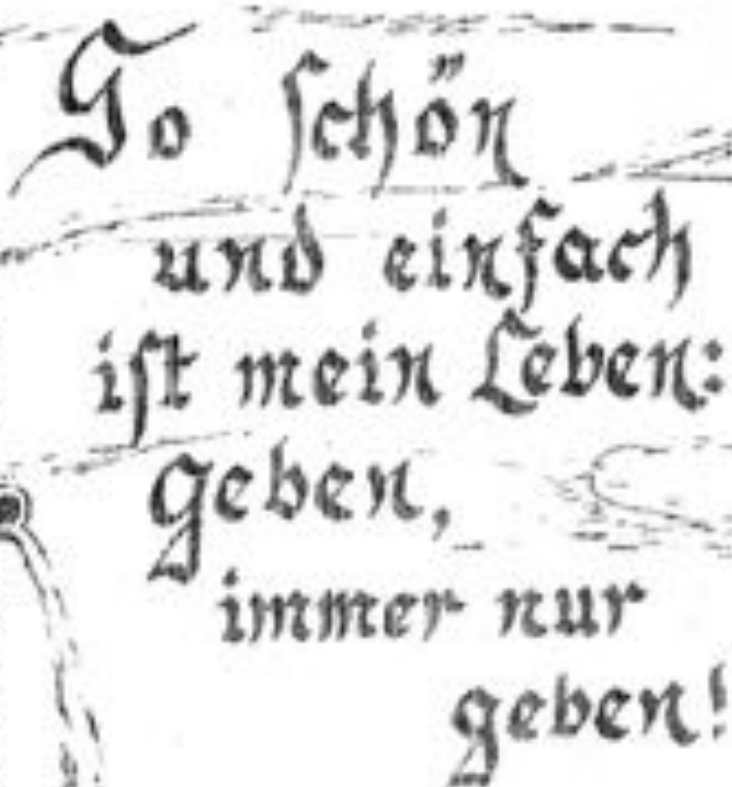 So schön
und einfach
ist mein Leben:
geben,
immer nur
geben!